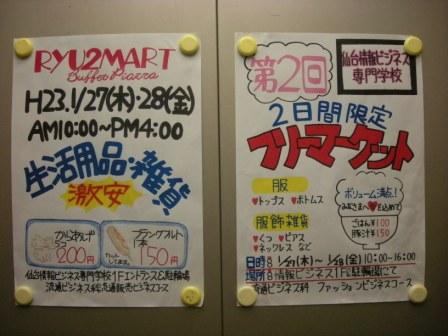 RYU2MART
Buffet Piazza
H23.1/27(木)・28(金)
AM10:00~PM4:00
生活用品・雑貨
激安
からあげ
5つ
200円
フランクフルト
1本
150円
仙台情報ビジネス専門学校1Fエントランス&駐輪場
流通ビジネス科流通販売ビジネスコース
第2回
仙台情報ビジネス
専門学校
2日間限定
フリーマーケット
服
♥トップス ♥ボトムス
服飾雑貨
♥くつ ♥ピアス
♥ネックレス など
ボリューム満点!
♥を込めて
ごはん ¥100
豚汁 ¥150
日時8 1/27(木)~1/28(金)10:00~16:00
場所8情報ビジネス1F&駐輪場にて
流通ビジネス科 ファッションビジネスコース